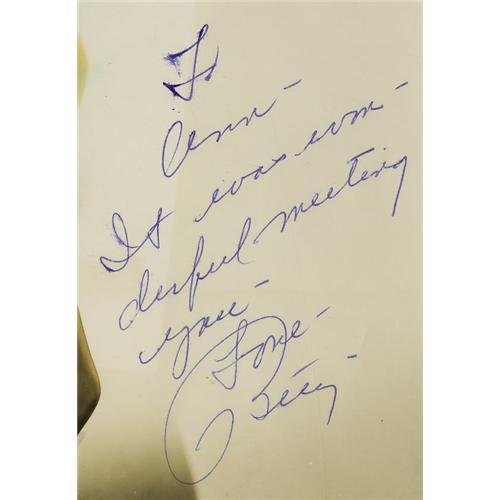 To
Ann-
It was won-
derful meeting
you-
Love-
Betty-